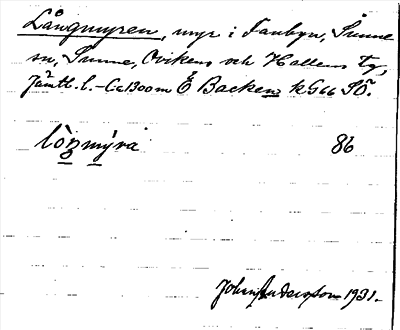 Långmyren, myr i Fanbyn, Sunne
sn, Sunne, Ovikens och Hallens tg,
Jämtl. l. - Ca 1300 m Ö Backen kG66 SÖ.
lòŋmýra 86
John Andersson 1931.